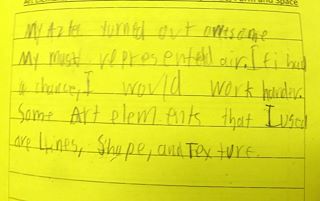 Form and Space
My Aztec turned out awesome
My mask represented air. If i had
a chance, I would work harder.
Some Art elements that I used
are Lines, Shape, and Texture.